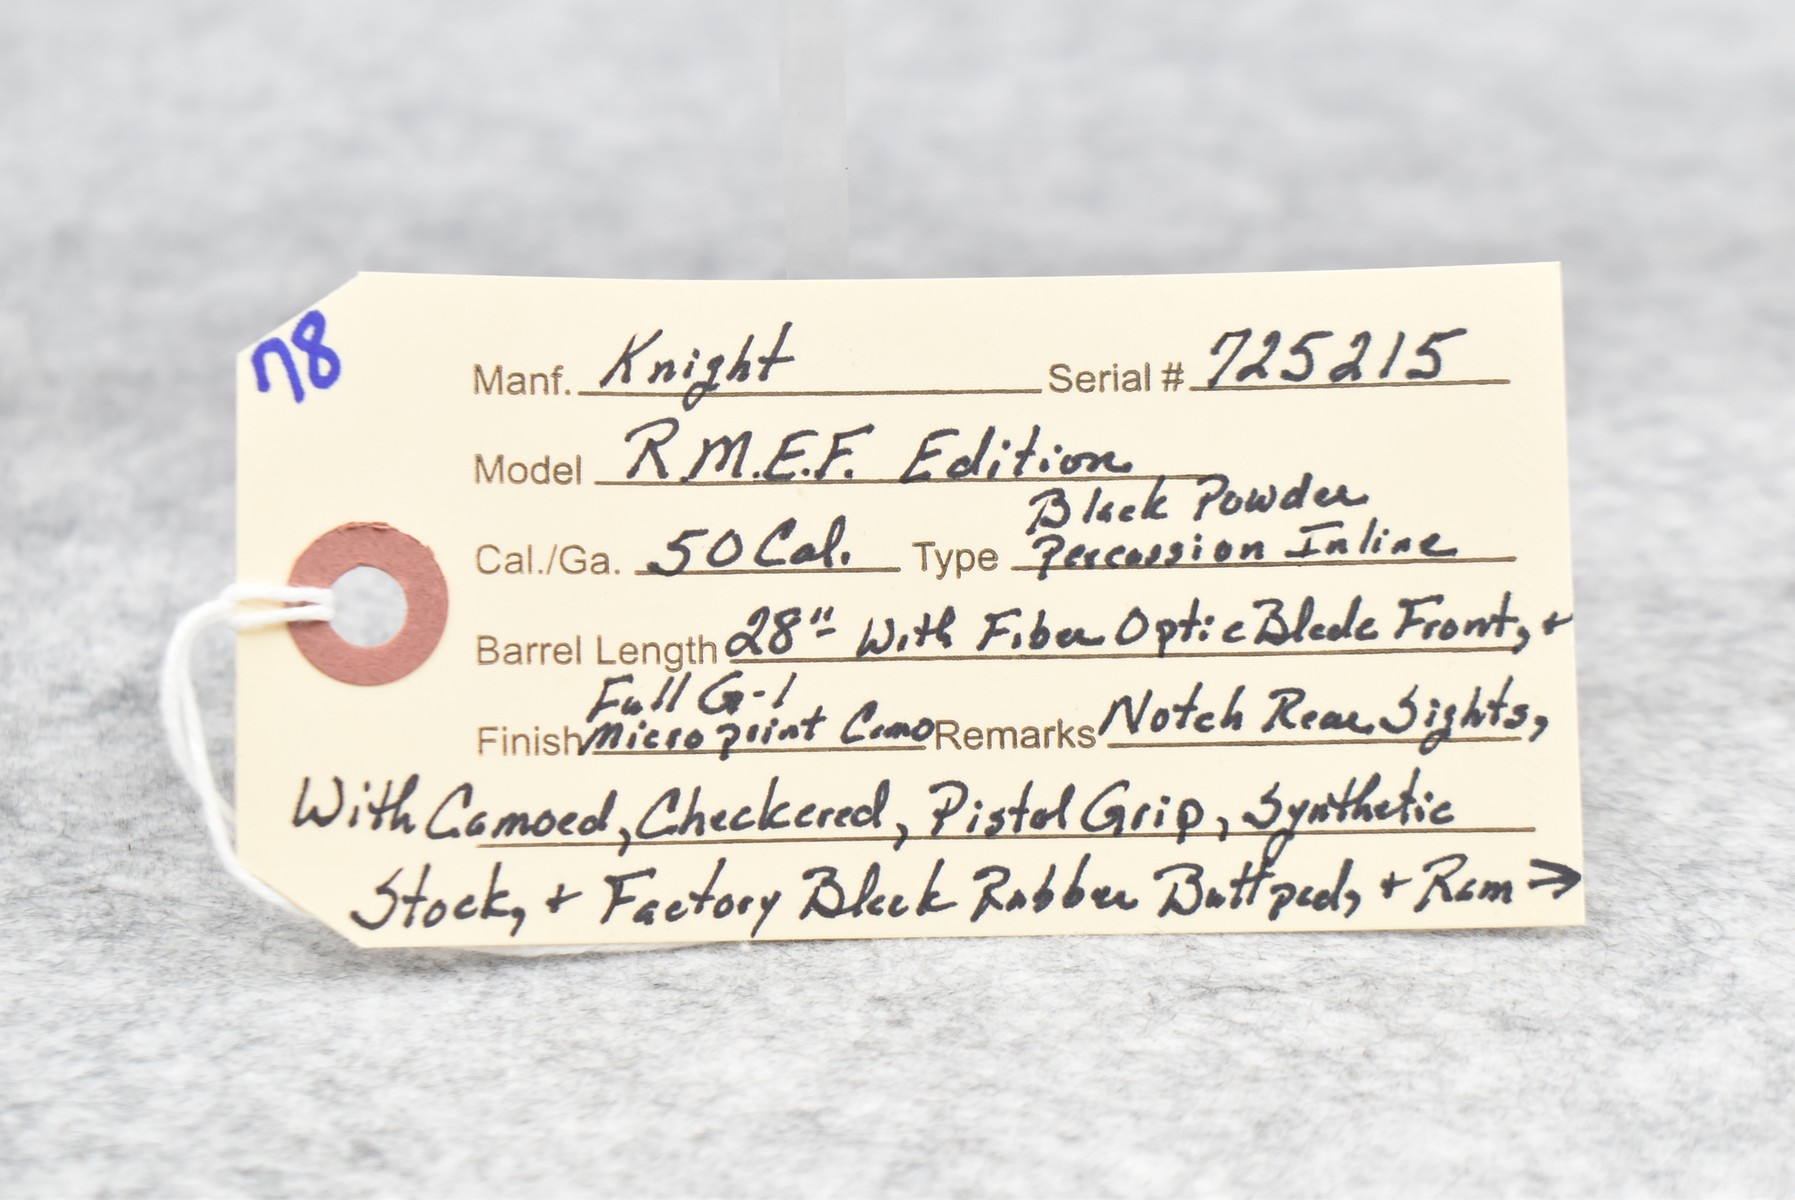 78
Manf. Knight Serial # 725215
Model R.M.E.F. Edition
Black Powder
Cal./Ga. 50 Cal. Type Percussion Inline
Barrel Length 28" With Fiber Optic Blade Front, +
Full G-1
Finish Microprint Camo Remarks Notch Rear Sights,
With Camoed, Checkered, Pistol Grip, Synthetic
Stock, + Factory Black Rubber Buttpad, + Ram →